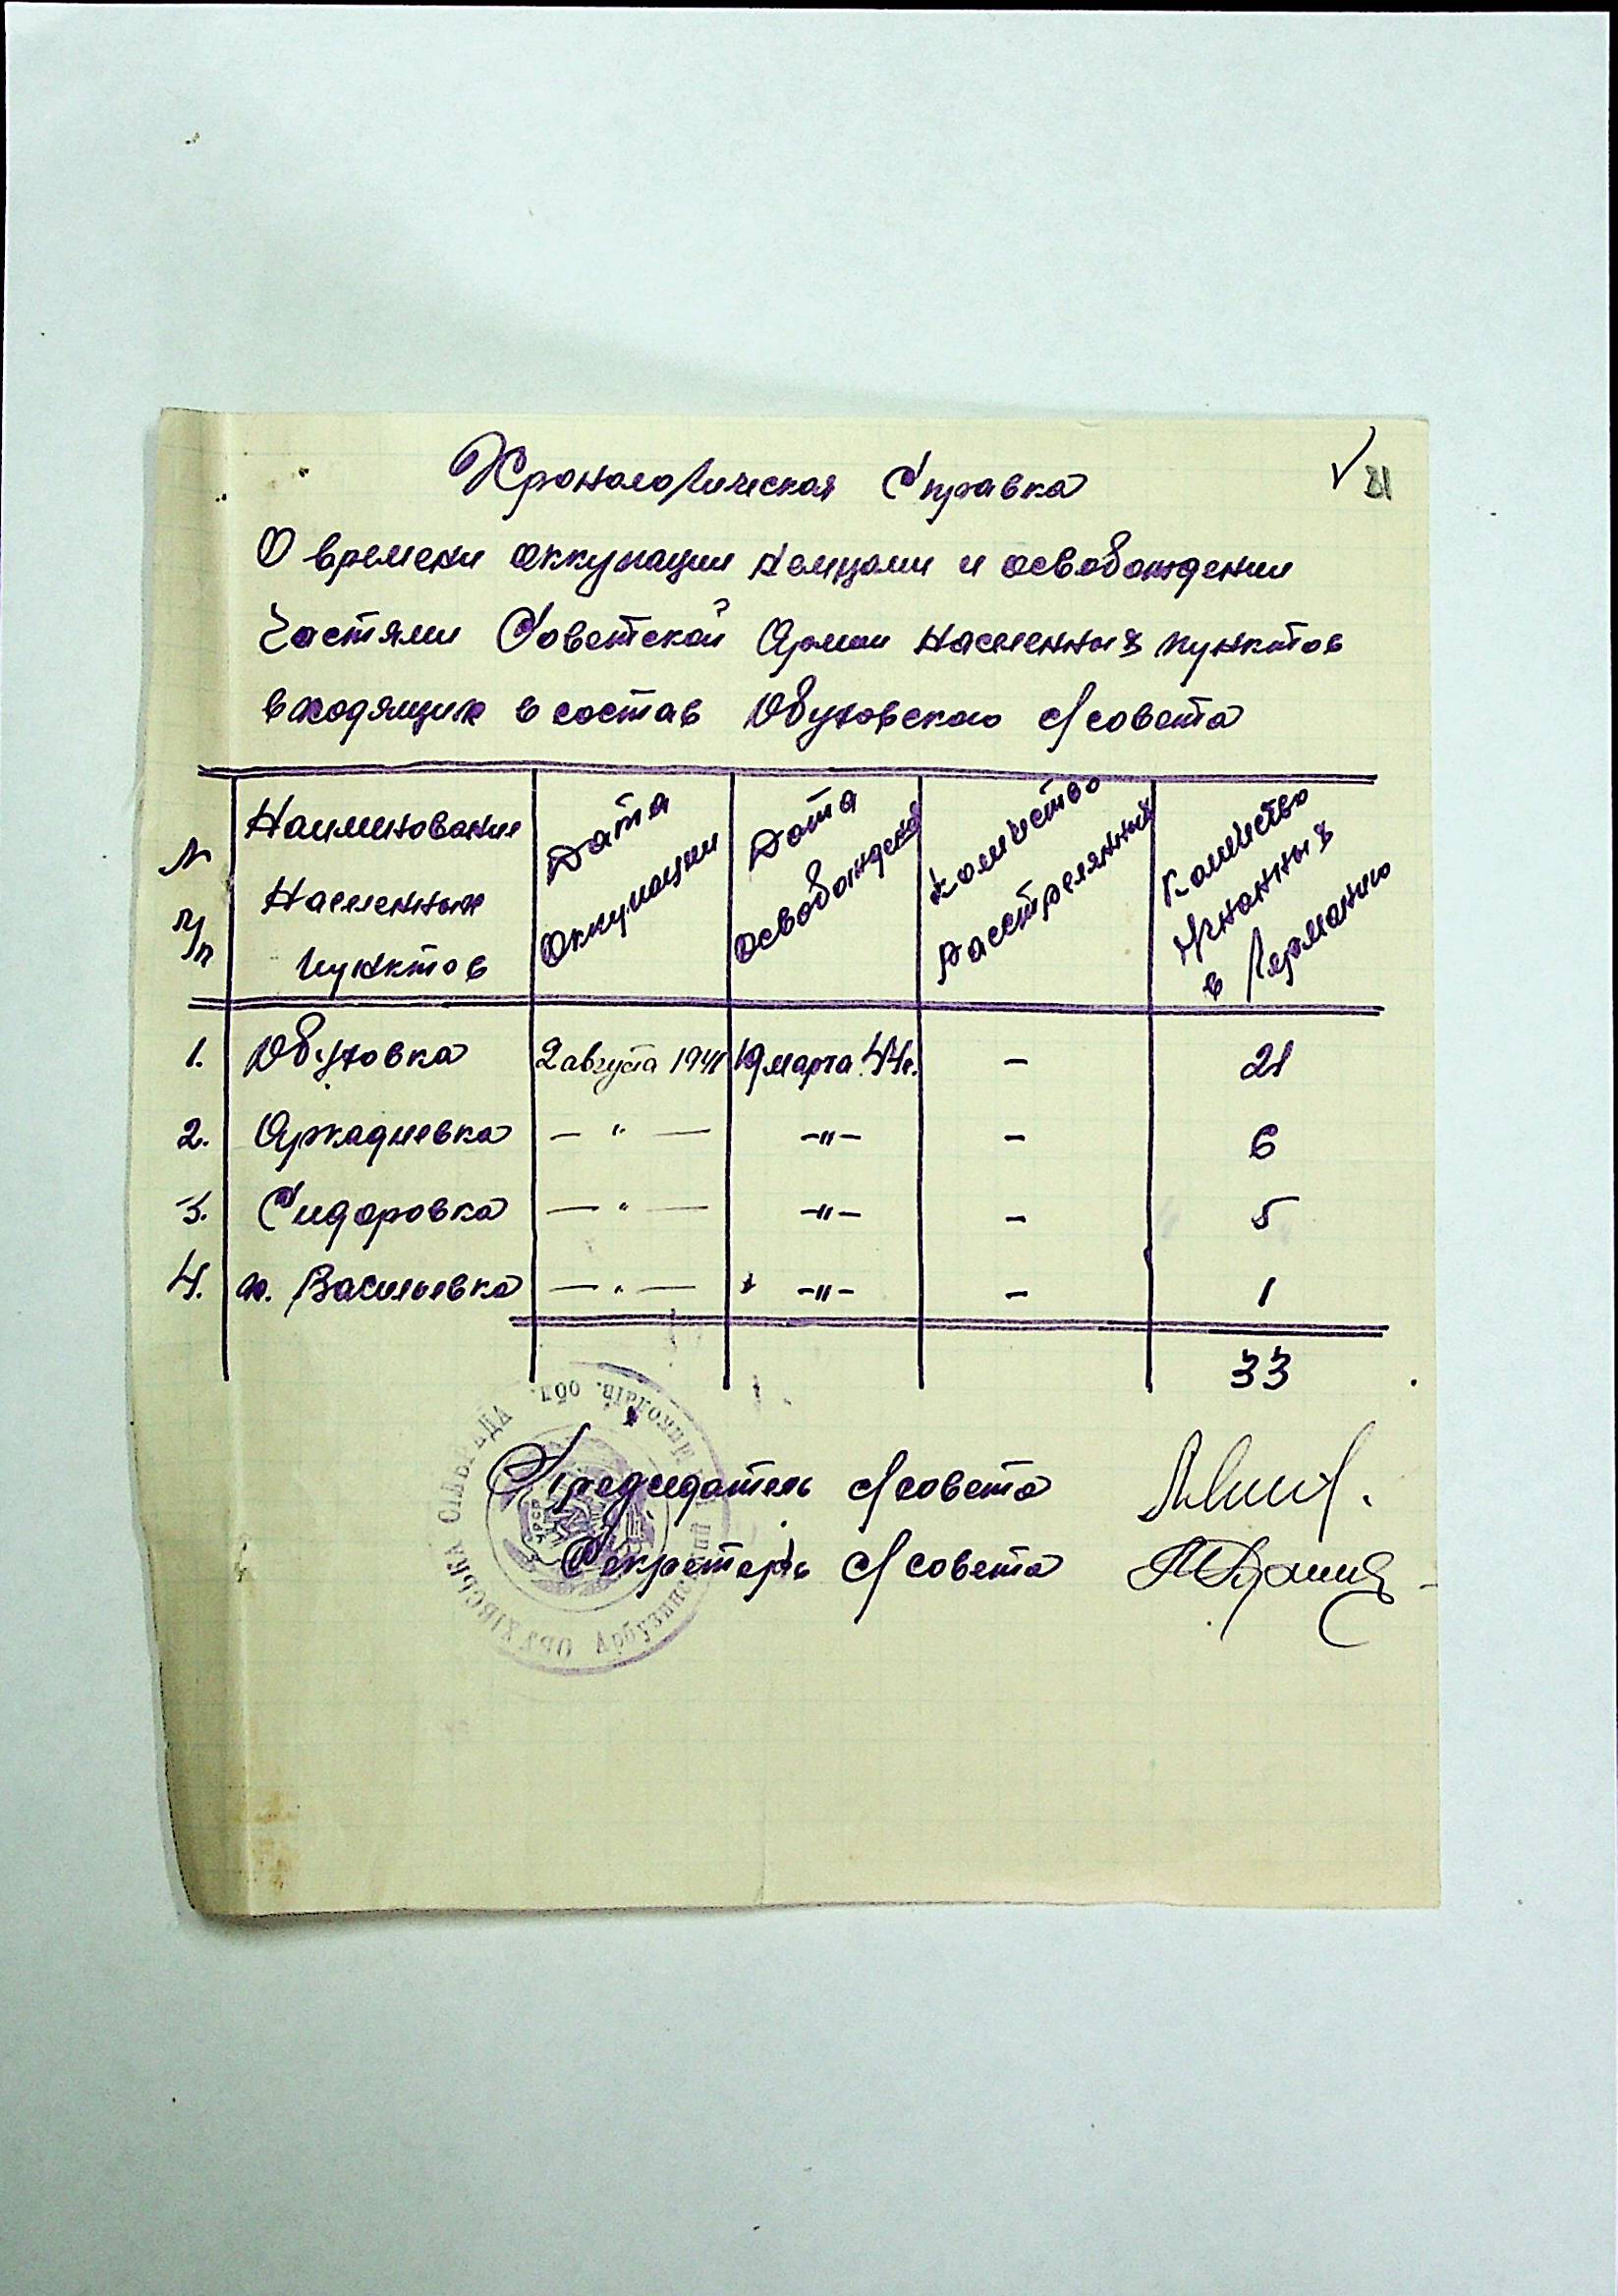 21
Хронологическая Справка
О времени оккупации немцами и освобождении
Частями Советской Армии Населенных пунктов
входящих в состав Обуховского с/совета
N п/п | Наименование Населенных пунктов | Дата Оккупации | Дата освобожден | Количество Расстрелянных | Количество Угнанных в Германию
1. | Обуховка | 2 августа 1941 | 19 марта 44г. | - | 21
2. | Аркадиевка | — " — | -"- | - | 6
3. | Сидоровка | — " — | -"- | - | 5
4. | н. Васильевка | — " — | -"- | - | 1
33
Председатель с/совета
Секретарь с/совета
ОБУХІВСЬКА СІЛЬРАДА
Арбузинськ Миколаїв. обл.